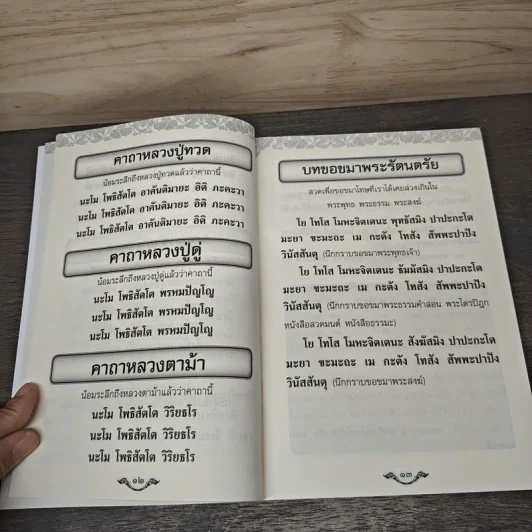 คาถาหลวงปู่ทวด
น้อมระลึกถึงหลวงปู่ทวดแล้วว่าคาถานี้
นะโม โพธิสัตโต อาคันติมายะ อิติ ภะคะวา
นะโม โพธิสัตโต อาคันติมายะ อิติ ภะคะวา
นะโม โพธิสัตโต อาคันติมายะ อิติ ภะคะวา
คาถาหลวงปู่ดู่
น้อมระลึกถึงหลวงปู่ดู่แล้วว่าคาถานี้
นะโม โพธิสัตโต พรหมปัญโญ
นะโม โพธิสัตโต พรหมปัญโญ
นะโม โพธิสัตโต พรหมปัญโญ
คาถาหลวงตาม้า
น้อมระลึกถึงหลวงตาม้าแล้วว่าคาถานี้
นะโม โพธิสัตโต วิริยธโร
นะโม โพธิสัตโต วิริยธโร
นะโม โพธิสัตโต วิริยธโร
๑๒
บทขอขมาพระรัตนตรัย
สวดเพื่อขอขมาโทษที่เราได้เคยล่วงเกินใน
พระพุทธ พระธรรม พระสงฆ์
โย โทโส โมหะจิตเตนะ พุทธัสมิง ปาปะกะโต
มะยา ขะมะถะ เม กะตัง โทสัง สัพพะปาปัง
วินัสสันตุ (นึกกราบขอขมาพระพุทธเจ้า)
โย โทโส โมหะจิตเตนะ ธัมมัสมิง ปาปะกะโต
มะยา ขะมะถะ เม กะตัง โทสัง สัพพะปาปัง
วินัสสันตุ (นึกกราบขอขมาพระธรรมคำสอน พระไตรปิฎก
หนังสือสวดมนต์ หนังสือธรรมะ)
โย โทโส โมหะจิตเตนะ สังฆัสมิง ปาปะกะโต
มะยา ขะมะถะ เม กะตัง โทสัง สัพพะปาปัง
วินัสสันตุ (นึกกราบขอขมาพระสงฆ์)
๑๓